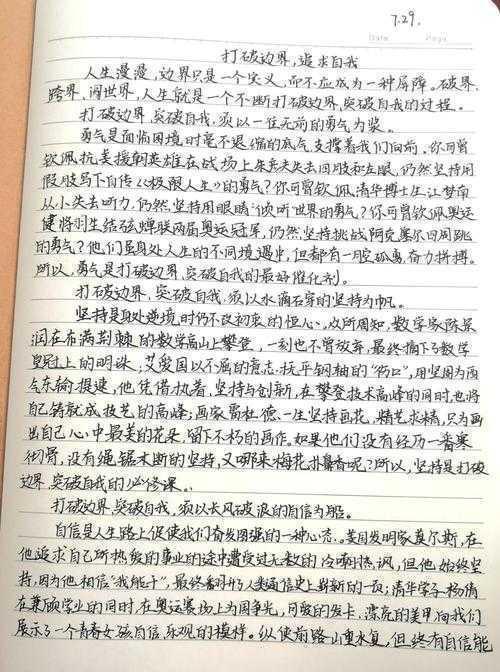 7.29.
Date Page
打破边界,追求自我
人生漫漫,边界只是一个定义,而不应成为一种屏障。破界、
跨界、阔世界,人生就是一个不断打破边界,突破自我的过程。
打破边界,突破自我,须以一往无前的勇气为桨。
勇气是面临困境时毫不退缩的底气,支撑着我们向前。你可曾
钦佩抗美援朝英雄在战场上朱彦夫失去四肢和左眼,仍然坚持用
假肢写下自传《极限人生》的勇气?你可曾钦佩清华博士生江梦南
从小失去听力,仍然坚持用眼睛“倾听”世界的勇气?你可曾钦佩奥运
健将羽生结弦蝉联两届奥运冠军,仍然坚持挑战阿克塞尔四周跳
的勇气?他们虽身处人生的不同境遇中,但都有一腔孤勇,奋力拼搏。
所以,勇气是打破边界,突破自我的最好催化剂。
打破边界,突破自我,须以水滴石穿的坚持为帆。
坚持是身处逆境时仍不改初衷的恒心。众所周知,数学家陈景
润在布满荆棘的数学高山上攀登,一刻也不曾放弃,最终摘下了数学
皇冠上的明珠,艾爱国以不屈的意志,抚平钢轴的“伤口”,用坚固为西
气东输提速,他凭借执着,坚持与创新,在攀登技术高峰的同时,也将
自己铸就成技艺的高峰;画家雷杜德一生坚持画花,精艺求精,只为画
出自己心中最美的花朵,留下不朽的画作。如果他们没有经历一番寒
彻骨,没有绳锯木断的坚持,又哪来梅花扑鼻香呢?所以,坚持是打破
边界,突破自我的必修课。
打破边界,突破自我,须以长风破浪的自信为船。
自信是人生路上促使我们奋发图强的一种心态。美国发明家莫尔斯,在
他追求自己所热爱的事业的途中遭受过无数的冷嘲热讽,但他始终坚
持,因为他相信“我能行”,最终翻开了人类通信史上崭新的一页;清华学子杨倩
在兼顾学业的同时,在奥运赛场上为国争光,可爱的发卡,漂亮的美甲向我们
展示了一个青春女孩自信、乐观的模样。纵使前路山重水复,但终有自信能